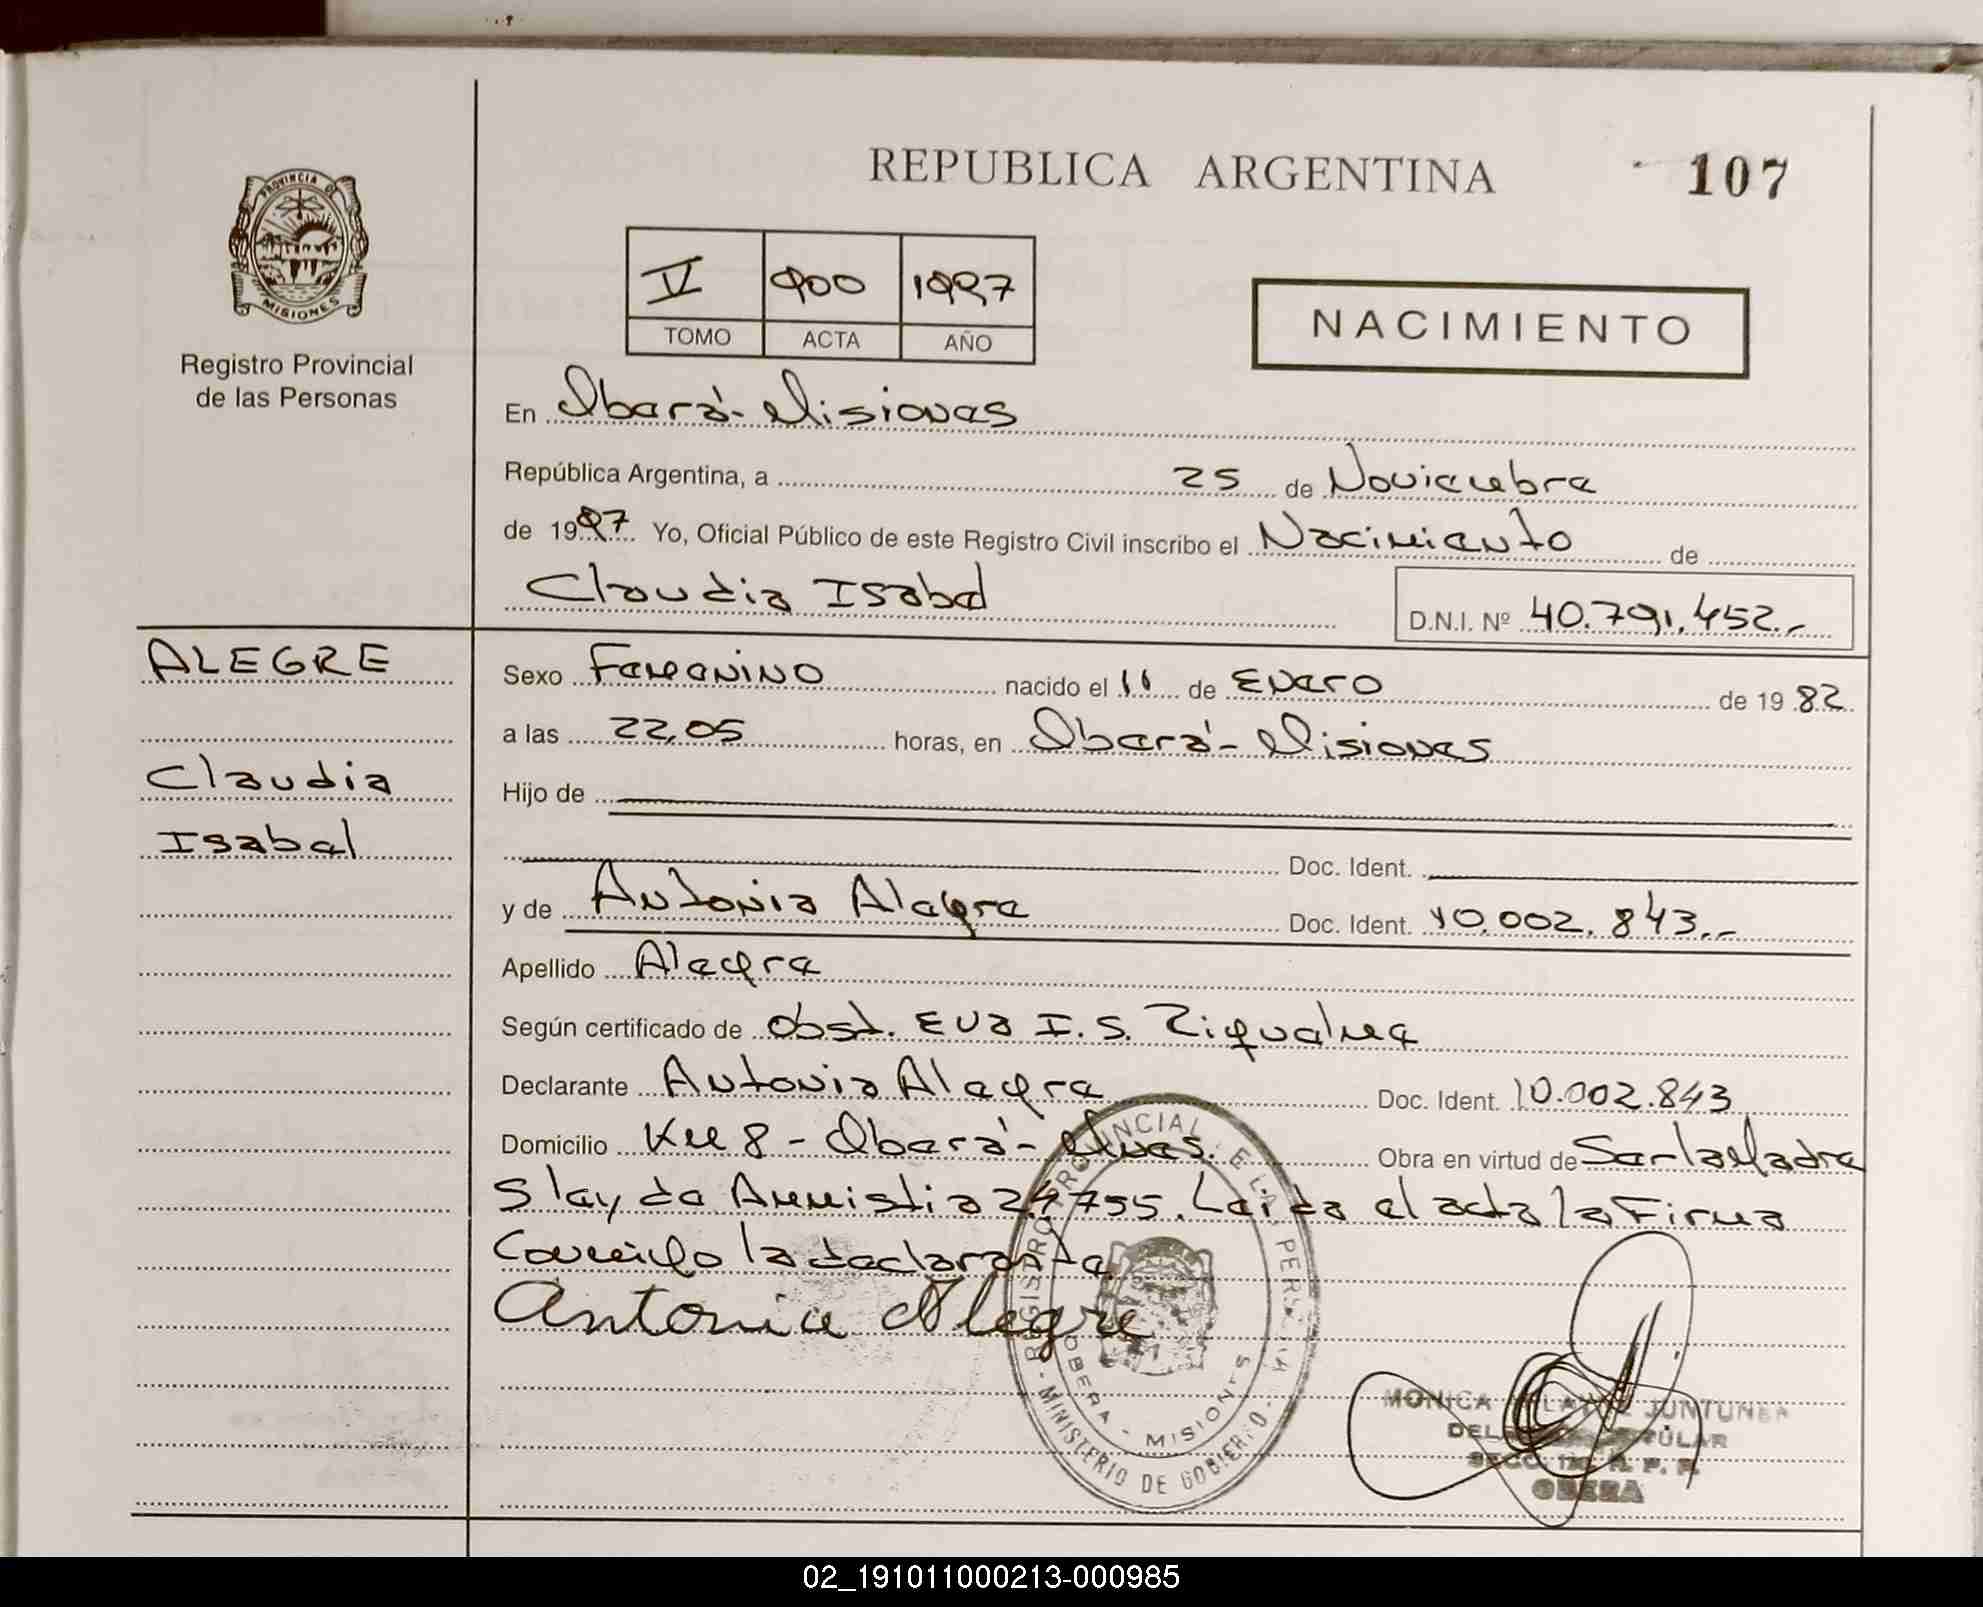 REPUBLICA ARGENTINA
107
PROVINCIA DE
MISIONES
Registro Provincial
de las Personas
V 900 1997
TOMO ACTA AÑO
NACIMIENTO
En Oberá - Misiones
República Argentina, a 25 de Noviembre
de 1997 Yo, Oficial Público de este Registro Civil inscribo el Nacimiento de
Claudia Isabel
D.N.I. Nº 40.791.452.-
ALEGRE
Claudia
Isabel
Sexo Femenino nacido el 11 de Enero de 1982
a las 22,05 horas, en Oberá - Misiones
Hijo de
Doc. Ident.
y de Antonia Alegre Doc. Ident. 10.002.843.-
Apellido Alegre
Según certificado de Obst. Eva I. S.
Declarante Antonia Alegre Doc. Ident. 10.002.843
Domicilio Km 8 - Oberá - Mnes. Obra en virtud de Ser la Madre
S/ley de Amnistia 24755. Leida el acta la Firma
Conmigo la declarante
Antonia Alegre
REGISTRO PROVINCIAL DE LAS PERSONAS
OBERA - MISIONES
MINISTERIO DE GOBIERNO
MONICA JUNTUNEN
TITULAR
R. P. P.
OBERA
02_191011000213-000985